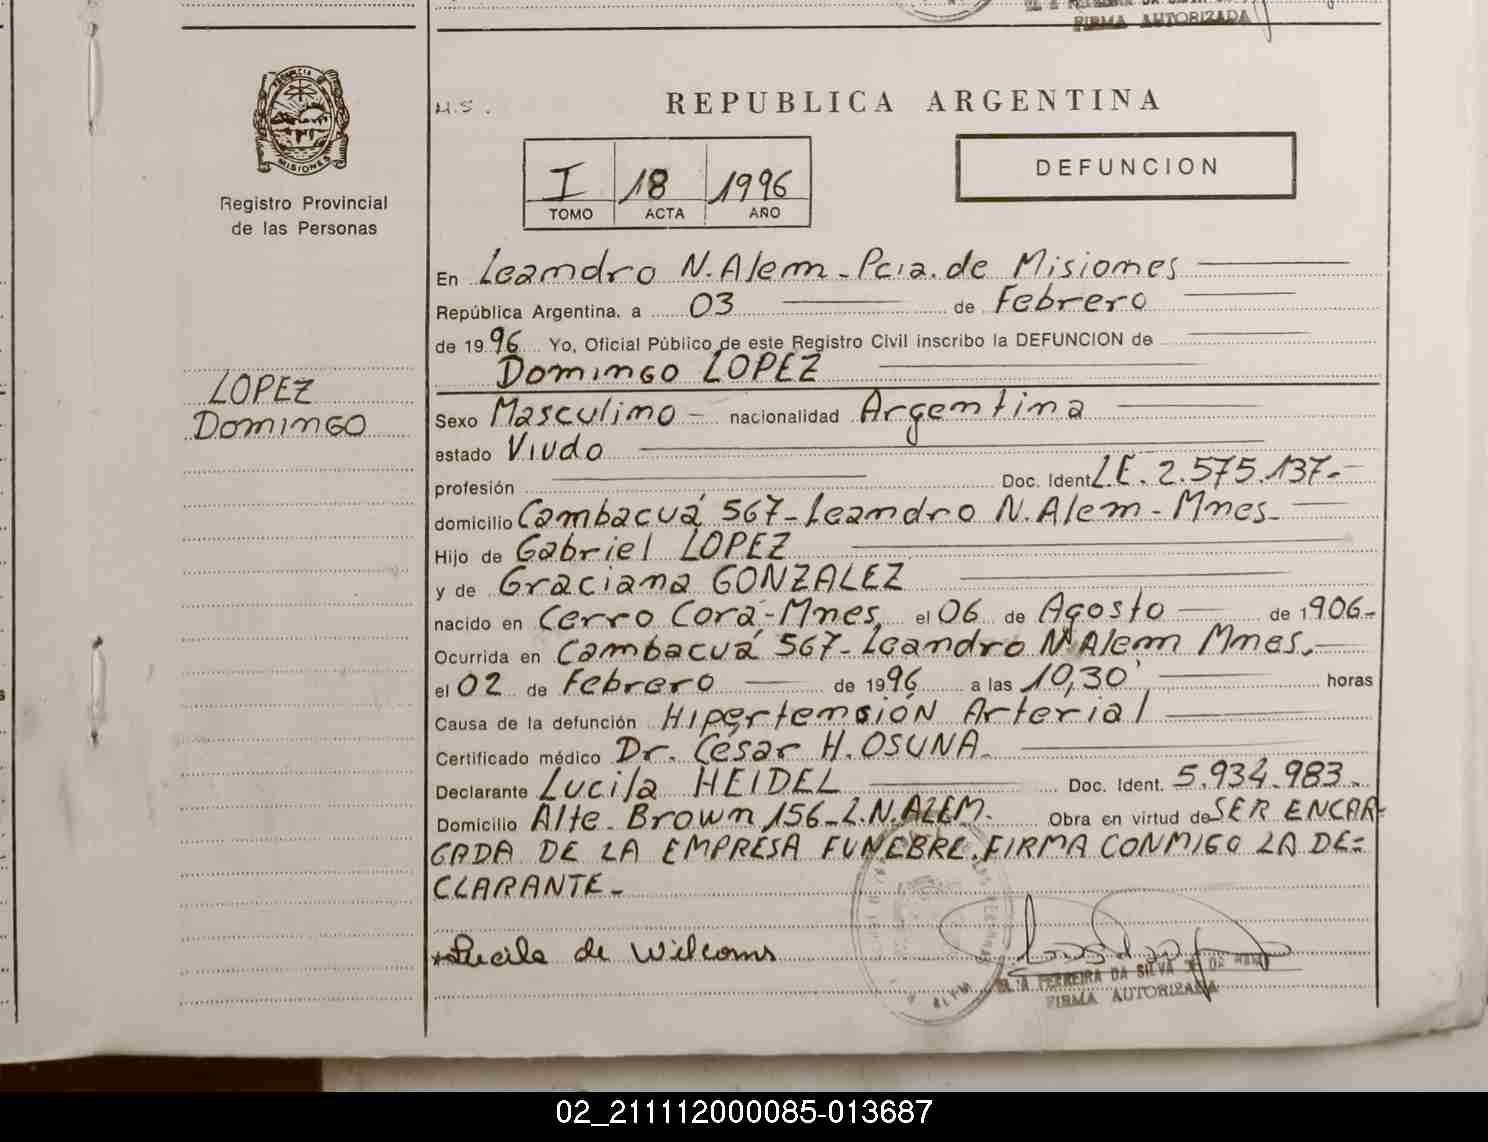 FIRMA AUTORIZADA
PROVINCIA DE
MISIONES
Registro Provincial
de las Personas
LOPEZ
Domingo
M.S.
REPUBLICA ARGENTINA
I 18 1996
TOMO ACTA AÑO
DEFUNCION
En Leandro N. Alem - Pcia. de Misiones
República Argentina, a 03 de Febrero
de 1996 Yo, Oficial Público de este Registro Civil inscribo la DEFUNCION de
Domingo LOPEZ
Sexo Masculino - nacionalidad Argentina
estado Viudo
profesión Doc. Ident L.E. 2.575.137.-
domicilio Cambacuá 567 - Leandro N. Alem - Mnes.
Hijo de Gabriel LOPEZ
y de Graciana GONZALEZ
nacido en Cerro Corá - Mnes. el 06 de Agosto de 1906.-
Ocurrida en Cambacuá 567 - Leandro N. Alem Mnes.
el 02 de Febrero de 1996 a las 10,30' horas
Causa de la defunción Hipertensión Arterial
Certificado médico Dr. César H. OSUNA.
Declarante Lucila HEIDEL Doc. Ident. 5.934.983.-
Domicilio Alte. Brown 156 - L.N. ALEM. Obra en virtud de SER ENCAR-
GADA DE LA EMPRESA FUNEBRE. FIRMA CONMIGO LA DE-
CLARANTE.-
Lucila de Wilcoms
FERREIRA DA SILVA
FIRMA AUTORIZADA
02_211112000085-013687